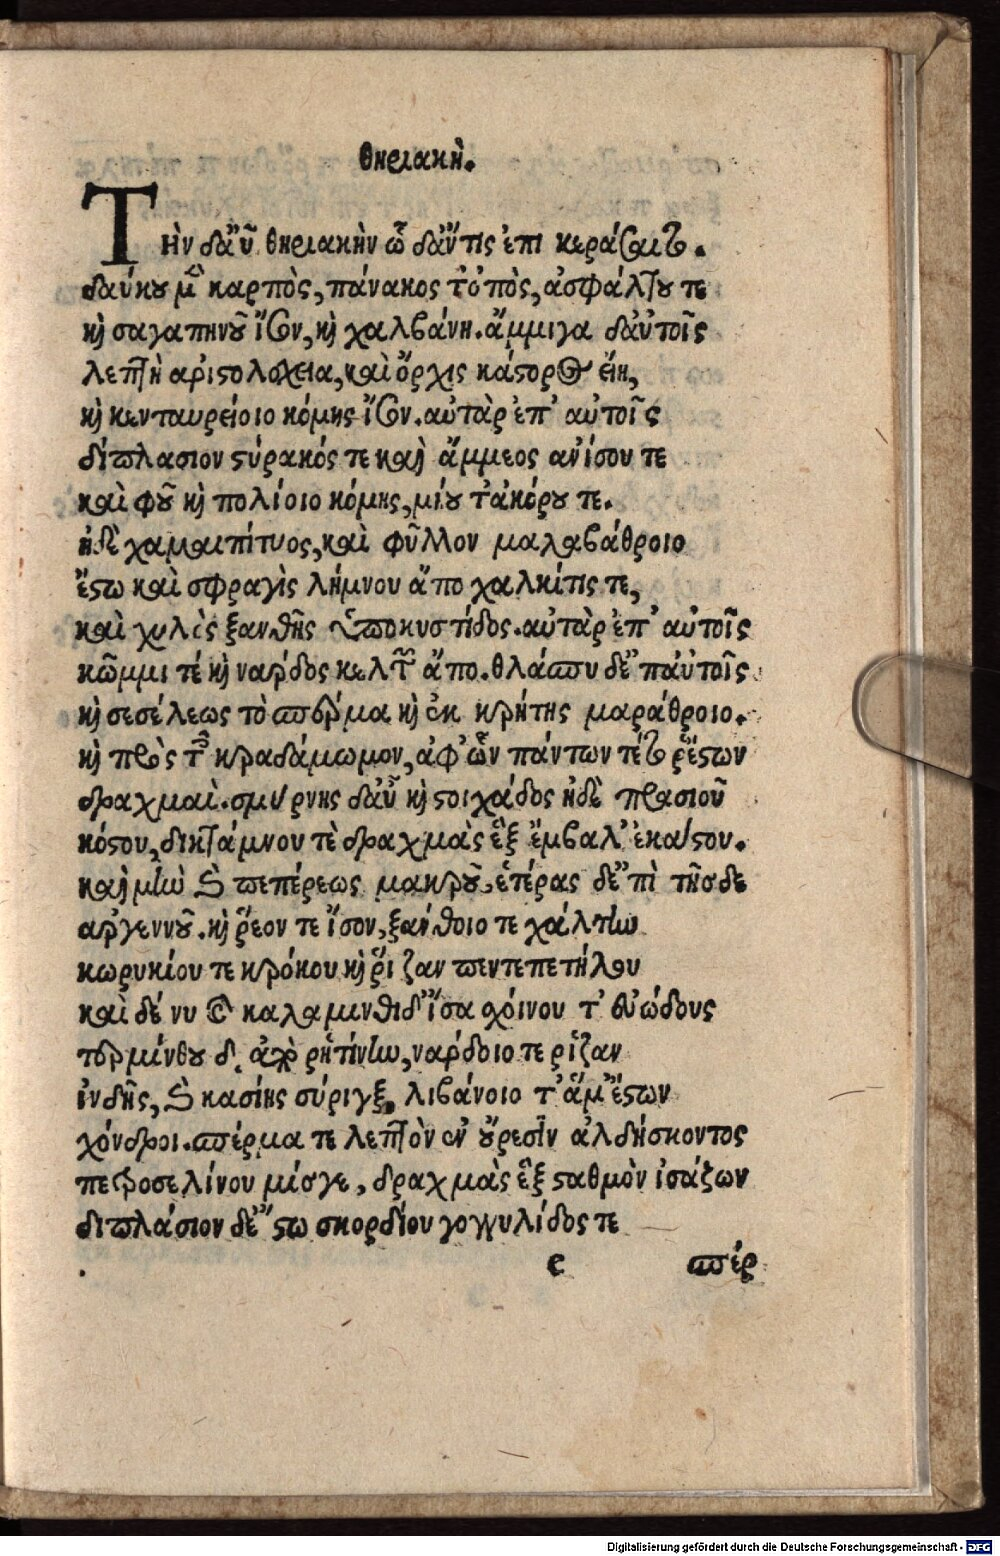 θηριακὴ.
Τὴν δ' αὖ θηριακὴν ὧδ' ἄν τις ἐπικεράσαιτο.
δαύκου μὲν καρπὸς, πάνακος τ' ὀπὸς, ἀσφάλτου τε
καὶ σαγαπηνοῦ ἴσον, καὶ χαλβάνη. ἄμμιγα δ' αὐτοῖς
λεπτὴ ἀριστολοχεία, καὶ ὄρχις κάστορος εἴη,
καὶ κενταυρείοιο κόμης ἴσον. αὐτὰρ ἐπ' αὐτοῖς
διπλάσιον στύρακός τε καὶ ἄμμεος ἀνίσου τε
καὶ φοῦ καὶ πολίοιο κόμης, μίου τ' ἀκόρου τε.
ἠδὲ χαμαιπίτυος, καὶ φῦλλον μαλαβάθροιο
ἔστω καὶ σφραγὶς λήμνου ἄπο χαλκίτις τε,
καὶ χυλὸς ξανθῆς ὑποκυστίδος. αὐτὰρ ἐπ' αὐτοῖς
κῶμμι τέ καὶ νάρδος κελτῶν ἄπο. θλάσπυ δ' ἔπ' αὐτοῖς
καὶ σεσέλεως τὸ σπέρμα καὶ ἐκ κρήτης μαράθροιο.
καὶ πρὸς τὸν κραδάμωμον, ἀφ' ὧν πάντων τέτορες ἔστων
δραχμαὶ. σμύρνης δ' αὖ καὶ στοιχάδος ἠδὲ πρασιοῦ
κόστου, δικτάμνου τὲ δραχμὰς ἓξ ἔμβαλ' ἑκάστου.
καὶ μὴν καὶ πεπέρεως μακροῦ, ἑτέρας δ' ἔπὶ τῆσδε
ἀργεννοῦ. καὶ ῥέον τε ἴσον, ξανθοιό τε χάλτην
κωρυκίου τε κρόκου καὶ ῥίζαν πεντεπετήλου
καὶ δέ νυ καὶ καλαμινθιδ' ἴσα σχόινου τ' εὐώδους
τερμίνθου δ' ἄχρι ῥητίνην, νάρδοιο τε ρίζαν
ἰνδῆς, καὶ κασίης σύριγξ, λιβάνοιο τ' ἅμ' ἔστων
χόνδροι. σπέρμα τε λεπτὸν ἐν οὔρεσιν ἀλδήσκοντος
πετροσελίνου μίσγε, δραχμὰς ἓξ σταθμὸν ἰσάζων
διπλάσιον δ' ἔστω σκορδίου γογγυλίδος τε
e σπέρ
Digitalisierung gefördert durch die Deutsche Forschungsgemeinschaft - DFG